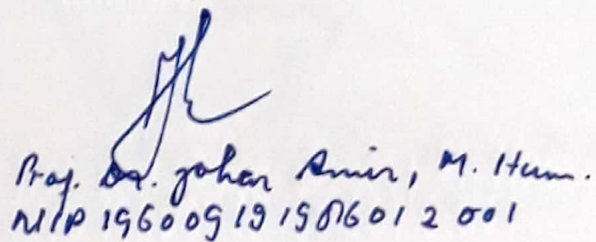 Prof. Dr. Johar Amir, M. Hum.
NIP 196009191986012001